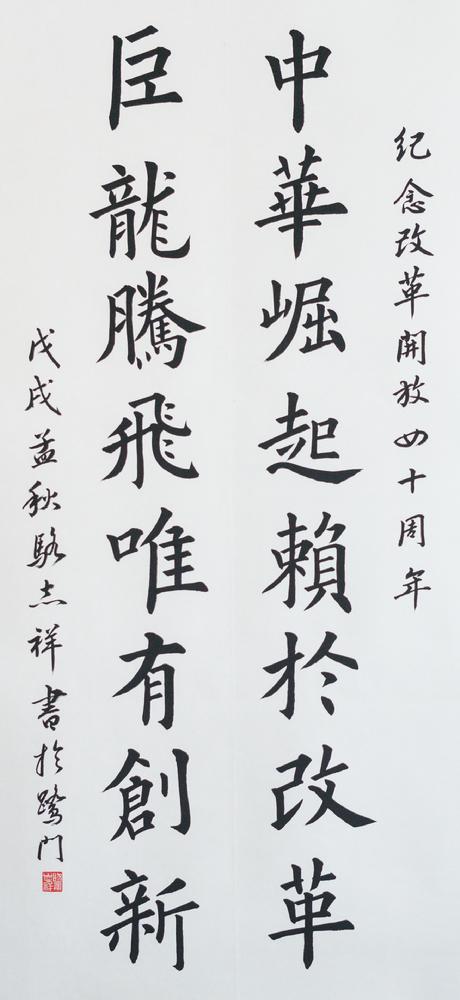 紀念改革開放四十周年
中華崛起賴於改革
巨龍騰飛唯有創新
戊戌孟秋駱志祥書於鷺門